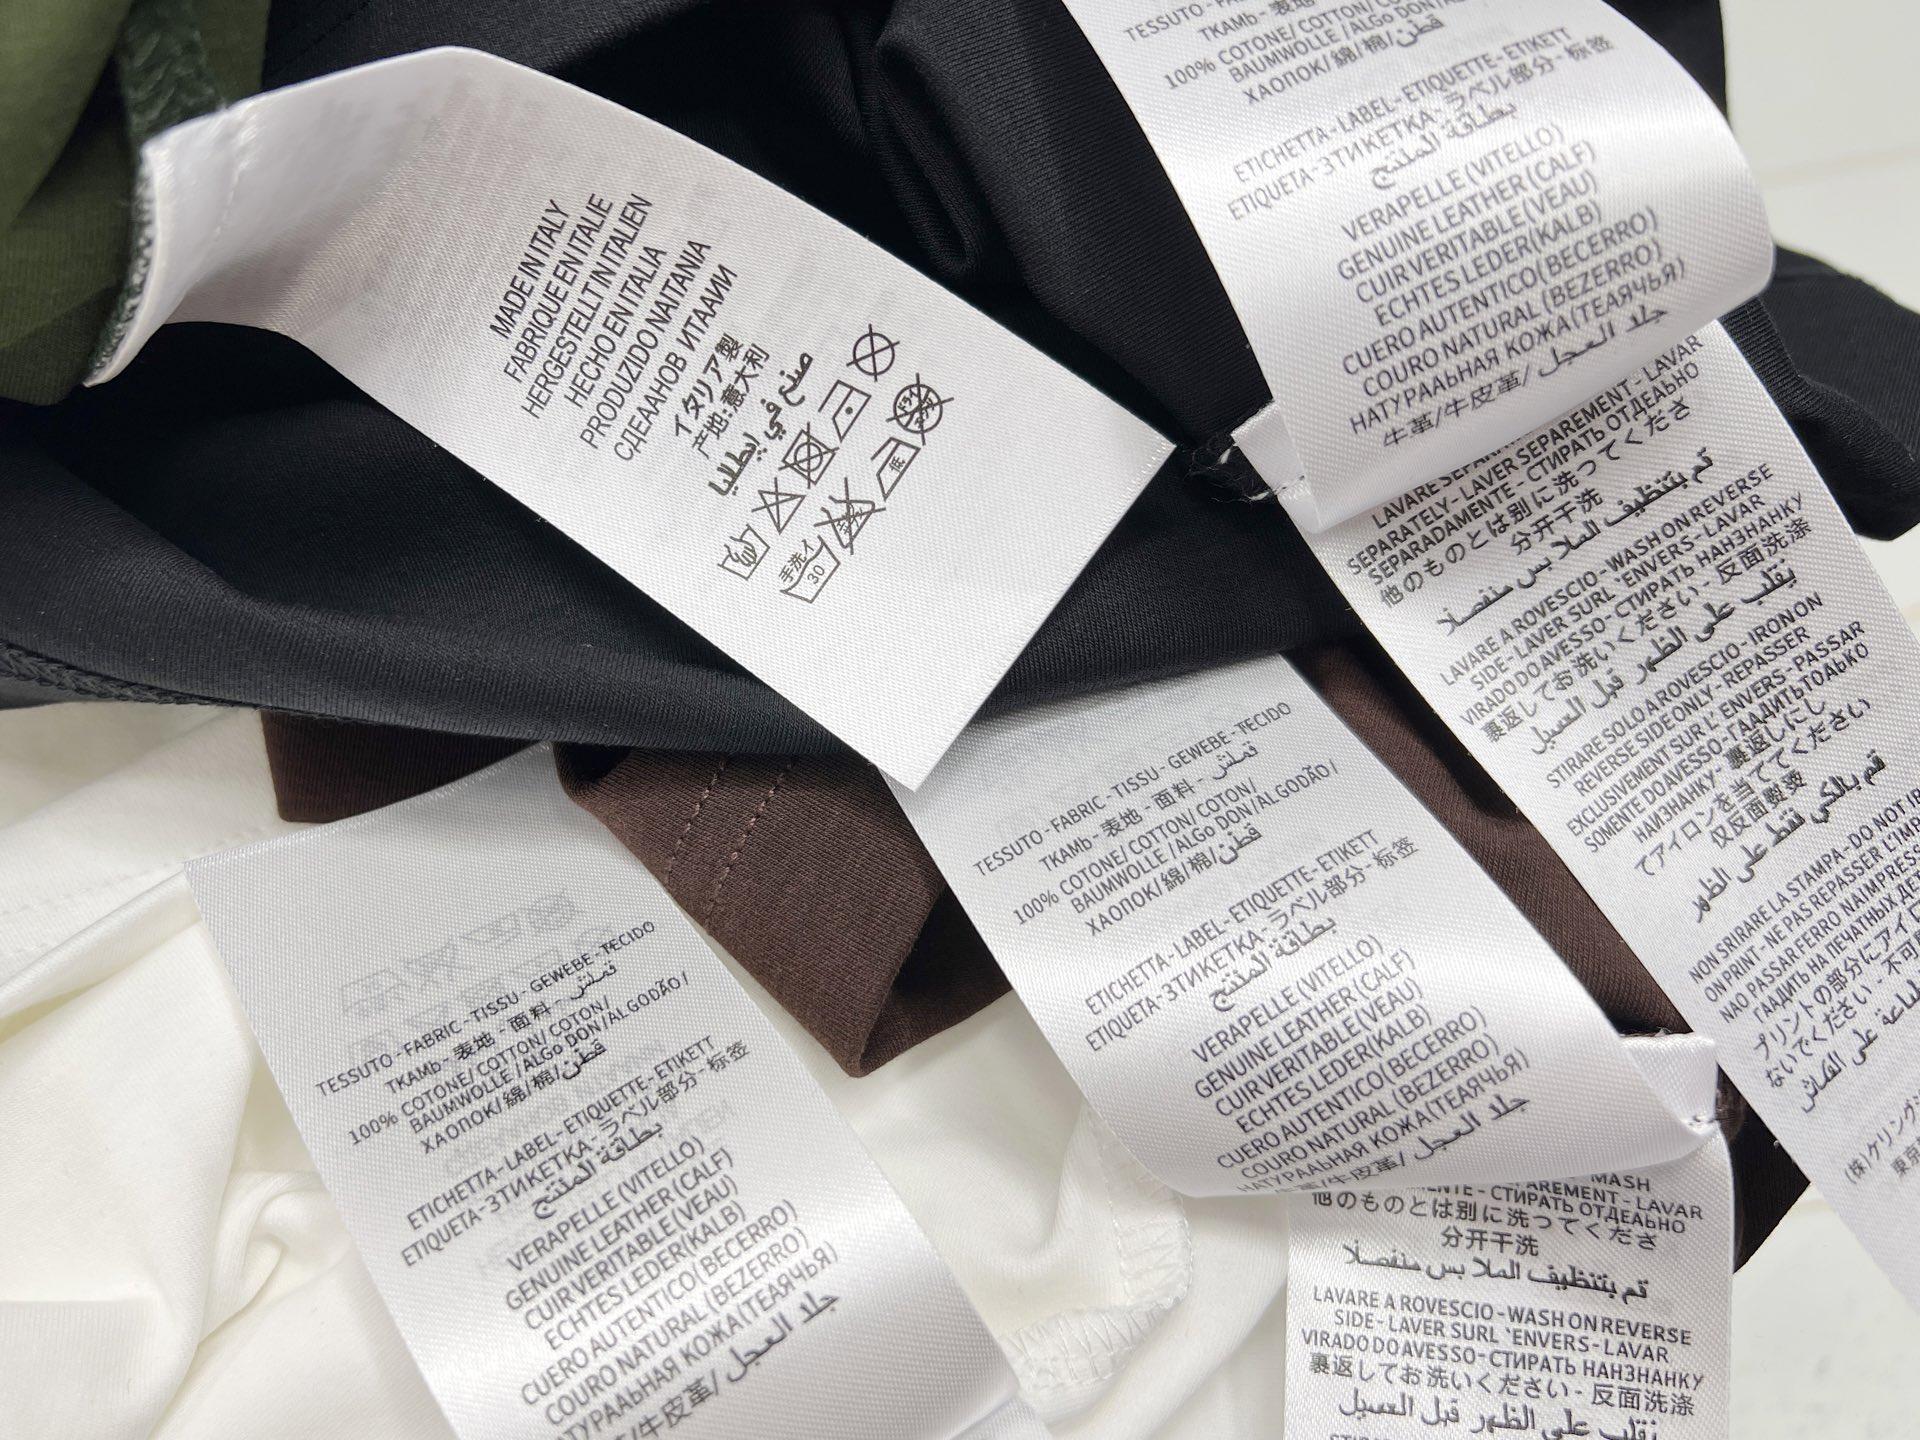 MADE IN ITALY
FABRIQUE EN ITALIE
HERGESTELLT IN ITALIEN
HECHO EN ITALIA
PRODUZIDO NA ITANIA
СДЕААНОВ ИТААИИ
イタリア製
产地:意大利
صنع في إيطاليا
手洗イ
30
低
TESSUTO-
ТКАМЬ-表地-
100% COTONE/COTTON/
BAUMWOLLE/ALGO DON/
ХАОПОК/綿/棉/قطن
ETICHETTA-LABEL-ETIQUETTE-ETIKETT
ETIQUETA-ЗТИКЕТКА-ラベル部分-标签
بطاقة المنتج
VERAPELLE (VITELLO)
GENUINE LEATHER (CALF)
CUIR VERITABLE (VEAU)
ECHTES LEDER(KALB)
CUERO AUTENTICO (BECERRO)
COURO NATURAL (BEZERRO)
НАТУРААЬНАЯ КОЖА(ТЕАЯЧЬЯ)
牛革/牛皮革/جلد العجل
SEPARATELY-LAVER SEPAREMENT-LAVAR
SEPARADAMENTE-СТИРАТЬ ОТДЕАЬНО
他のものとは別に洗ってくださ
分开干洗
قم بتنظيف الملا بس منفصلا
LAVARE A ROVESCIO-WASH ON REVERSE
SIDE-LAVER SURL 'ENVERS-LAVAR
VIRADO DO AVESSO-СТИРАТЬ НАНЗНАНКУ
裏返してお洗いください-反面洗涤
يقلب على الظهر قبل الغسيل
STIRARE SOLO A ROVESCIO-IRON ON
REVERSE SIDE ONLY-REPASSER
EXCLUSIVEMENT SUR L' ENVERS-PASSAR
SOMENTE DO AVESSO-ГААДИТЬ ТОАЬКО
НАИЗНАНКУ-裏返しにし
てアイロンを当ててください
仅反面熨烫
قم بالكي فقط على الظهر
NON SRIRARE LA STAMPA-DO NOT IR
ON PRINT-NE PAS REPASSER L'IMP
NAO PASSAR FERRO NA IMPRESS
ГААДИТЬ НА ПЕЧАТНЫХ ДЕТ
プリントの部分にアイロ
ないでください-不可
على القماش
(株)ケリング
東京
TESSUTO-FABRIC-TISSU-GEWEBE-TECIDO
ТКАМЬ-表地-面料-قملش
100% COTONE/COTTON/COTON/
BAUMWOLLE/ALGO DON/ALGODÃO/
ХАОПОК/綿/棉/قطن
ETICHETTA-LABEL-ETIQUETTE-ETIKETT
ETIQUETA-ЗТИКЕТКА-ラベル部分-标签
بطاقة المنتج
VERAPELLE (VITELLO)
GENUINE LEATHER (CALF)
CUIR VERITABLE (VEAU)
ECHTES LEDER(KALB)
CUERO AUTENTICO (BECERRO)
COURO NATURAL (BEZERRO)
НАТУРААЬНАЯ КОЖА(ТЕАЯЧЬЯ)
牛革/牛皮革/جلد العجل
TESSUTO-FABRIC-TISSU-GEWEBE-TECIDO
ТКАМЬ-表地-面料-قملش
100% COTONE/COTTON/COTON/
BAUMWOLLE/ALGO DON/ALGODÃO/
ХАОПОК/綿/棉/قطن
ETICHETTA-LABEL-ETIQUETTE-ETIKETT
ETIQUETA-ЗТИКЕТКА-ラベル部分-标签
بطاقة المنتج
VERAPELLE (VITELLO)
GENUINE LEATHER (CALF)
CUIR VERITABLE (VEAU)
ECHTES LEDER(KALB)
CUERO AUTENTICO (BECERRO)
COURO NATURAL (BEZERRO)
АТУРААЬНАЯ КОЖА(ТЕАЯЧЬЯ)
/牛皮革/جلد العجل
MASH
AREMENT-LAVAR
NTE-СТИРАТЬ ОТДЕАЬНО
他のものとは別に洗ってくださ
分开干洗
قم بتنظيف الملا بس منفصلا
LAVARE A ROVESCIO-WASH ON REVERSE
SIDE-LAVER SURL 'ENVERS-LAVAR
VIRADO DO AVESSO-СТИРАТЬ НАНЗНАНКУ
裏返してお洗いください-反面洗涤
يقلب على الظهر قبل الغسيل